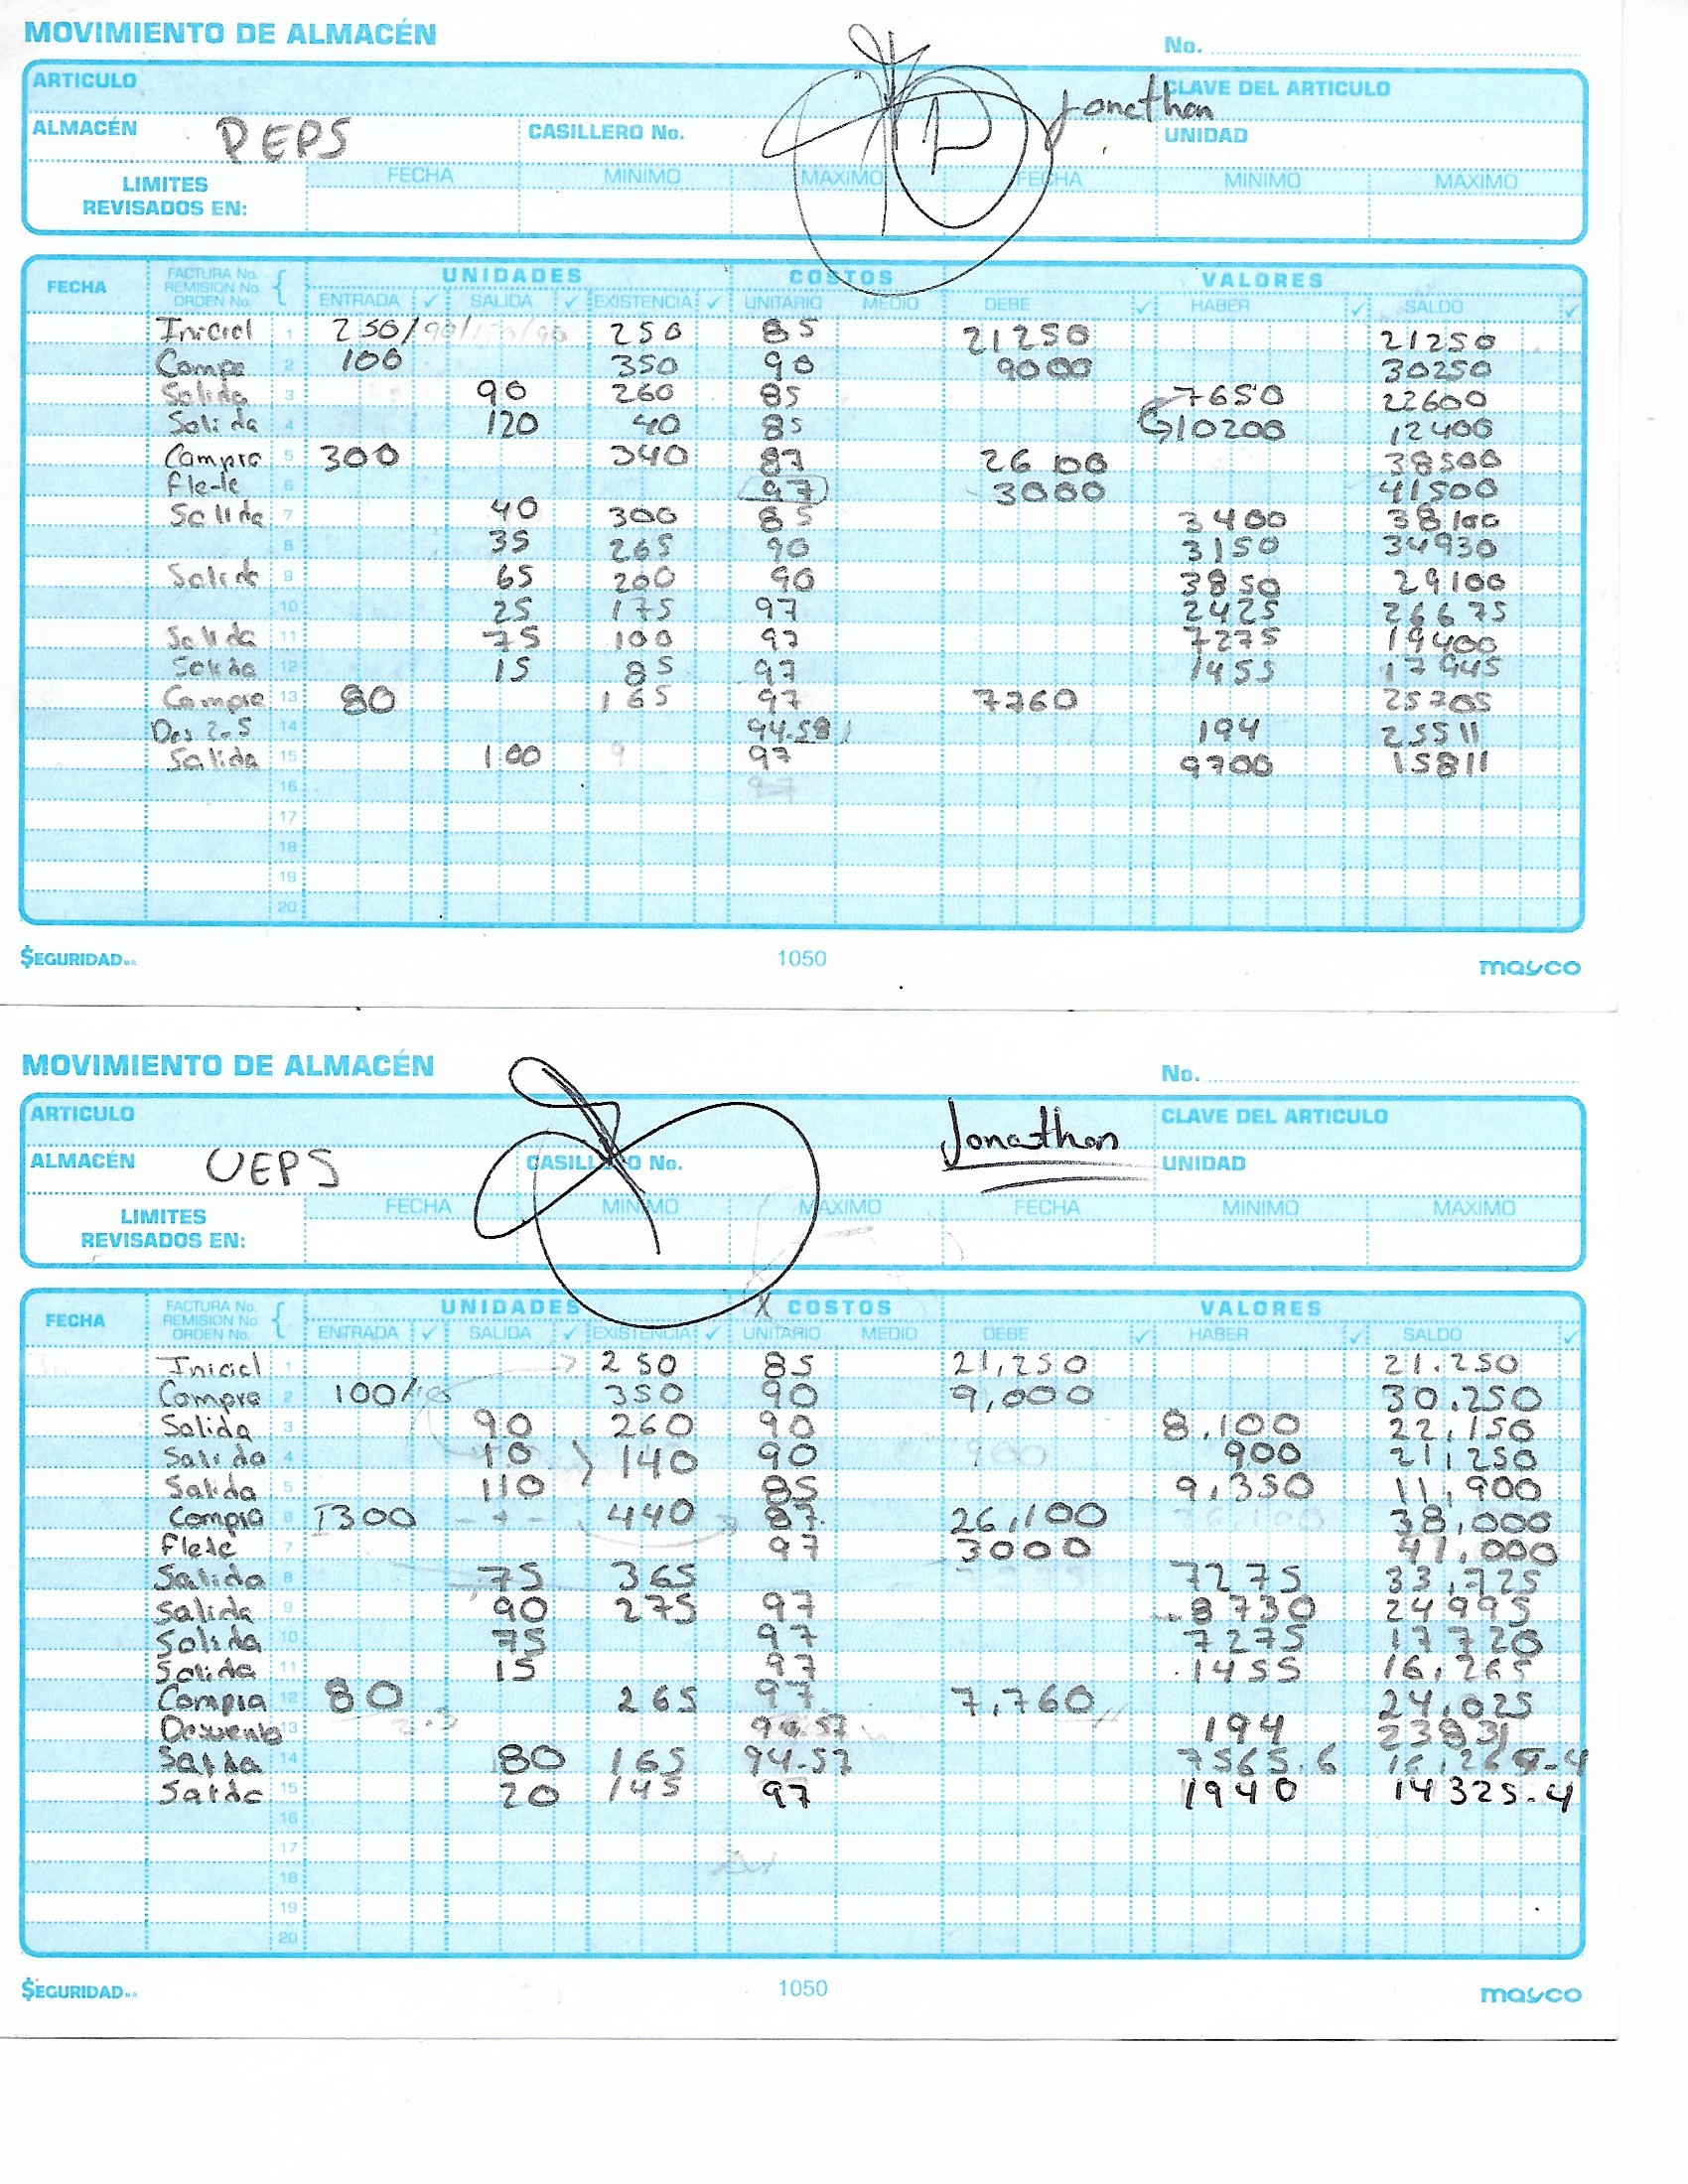 MOVIMIENTO DE ALMACÉN
No.
ARTICULO
CLAVE DEL ARTICULO
Jonathan
ALMACÉN PEPS CASILLERO No. UNIDAD
LIMITES REVISADOS EN: FECHA MINIMO MAXIMO FECHA MINIMO MAXIMO
UNIDADES COSTOS VALORES
FECHA FACTURA No. REMISION No. ORDEN No. ENTRADA ✓ SALIDA ✓ EXISTENCIA ✓ UNITARIO MEDIO DEBE ✓ HABER ✓ SALDO ✓
Inicial 1 250/ 250 85 21250 21250
Compe 2 100 350 90 9000 30250
Salida 3 90 260 85 7650 22600
Salida 4 120 40 85 10200 12400
Compra 5 300 340 87 26100 38500
flete 6 97 3000 41500
Salida 7 40 300 85 3400 38100
8 35 265 90 3150 34930
Salida 9 65 200 90 3850 29100
10 25 175 97 2425 26675
Salida 11 75 100 97 7275 19400
Salida 12 15 85 97 1455 17945
Compra 13 80 165 97 7760 25705
Des 2.5 14 94.58 194 25511
Salida 15 100 97 9700 15811
16
17
18
19
20
$EGURIDAD M.R. 1050 mayco
MOVIMIENTO DE ALMACÉN
No.
ARTICULO Jonathan CLAVE DEL ARTICULO
ALMACÉN UEPS CASILLERO No. UNIDAD
LIMITES REVISADOS EN: FECHA MINIMO MAXIMO FECHA MINIMO MAXIMO
UNIDADES X COSTOS VALORES
FECHA FACTURA No. REMISION No. ORDEN No. ENTRADA ✓ SALIDA ✓ EXISTENCIA ✓ UNITARIO MEDIO DEBE ✓ HABER ✓ SALDO ✓
Inicial 1 250 85 21,250 21.250
Compra 2 100/ 350 90 9,000 30.250
Salida 3 90 260 90 8,100 22,150
Salida 4 10 140 90 900 21,250
Salida 5 110 85 9,350 11,900
Compra 6 300 440 87 26,100 38,000
Flete 7 97 3000 41,000
Salida 8 75 365 7275 33,725
Salida 9 90 275 97 8730 24995
Salida 10 75 97 7275 17720
Salida 11 15 97 1455 16,265
Compra 12 80 265 97 7,760 24,025
Descuento 13 94.57 194 23831
Salida 14 80 165 94.57 7565.6
Salida 15 20 145 97 1940 14325.4
16
17
18
19
20
$EGURIDAD M.R. 1050 mayco